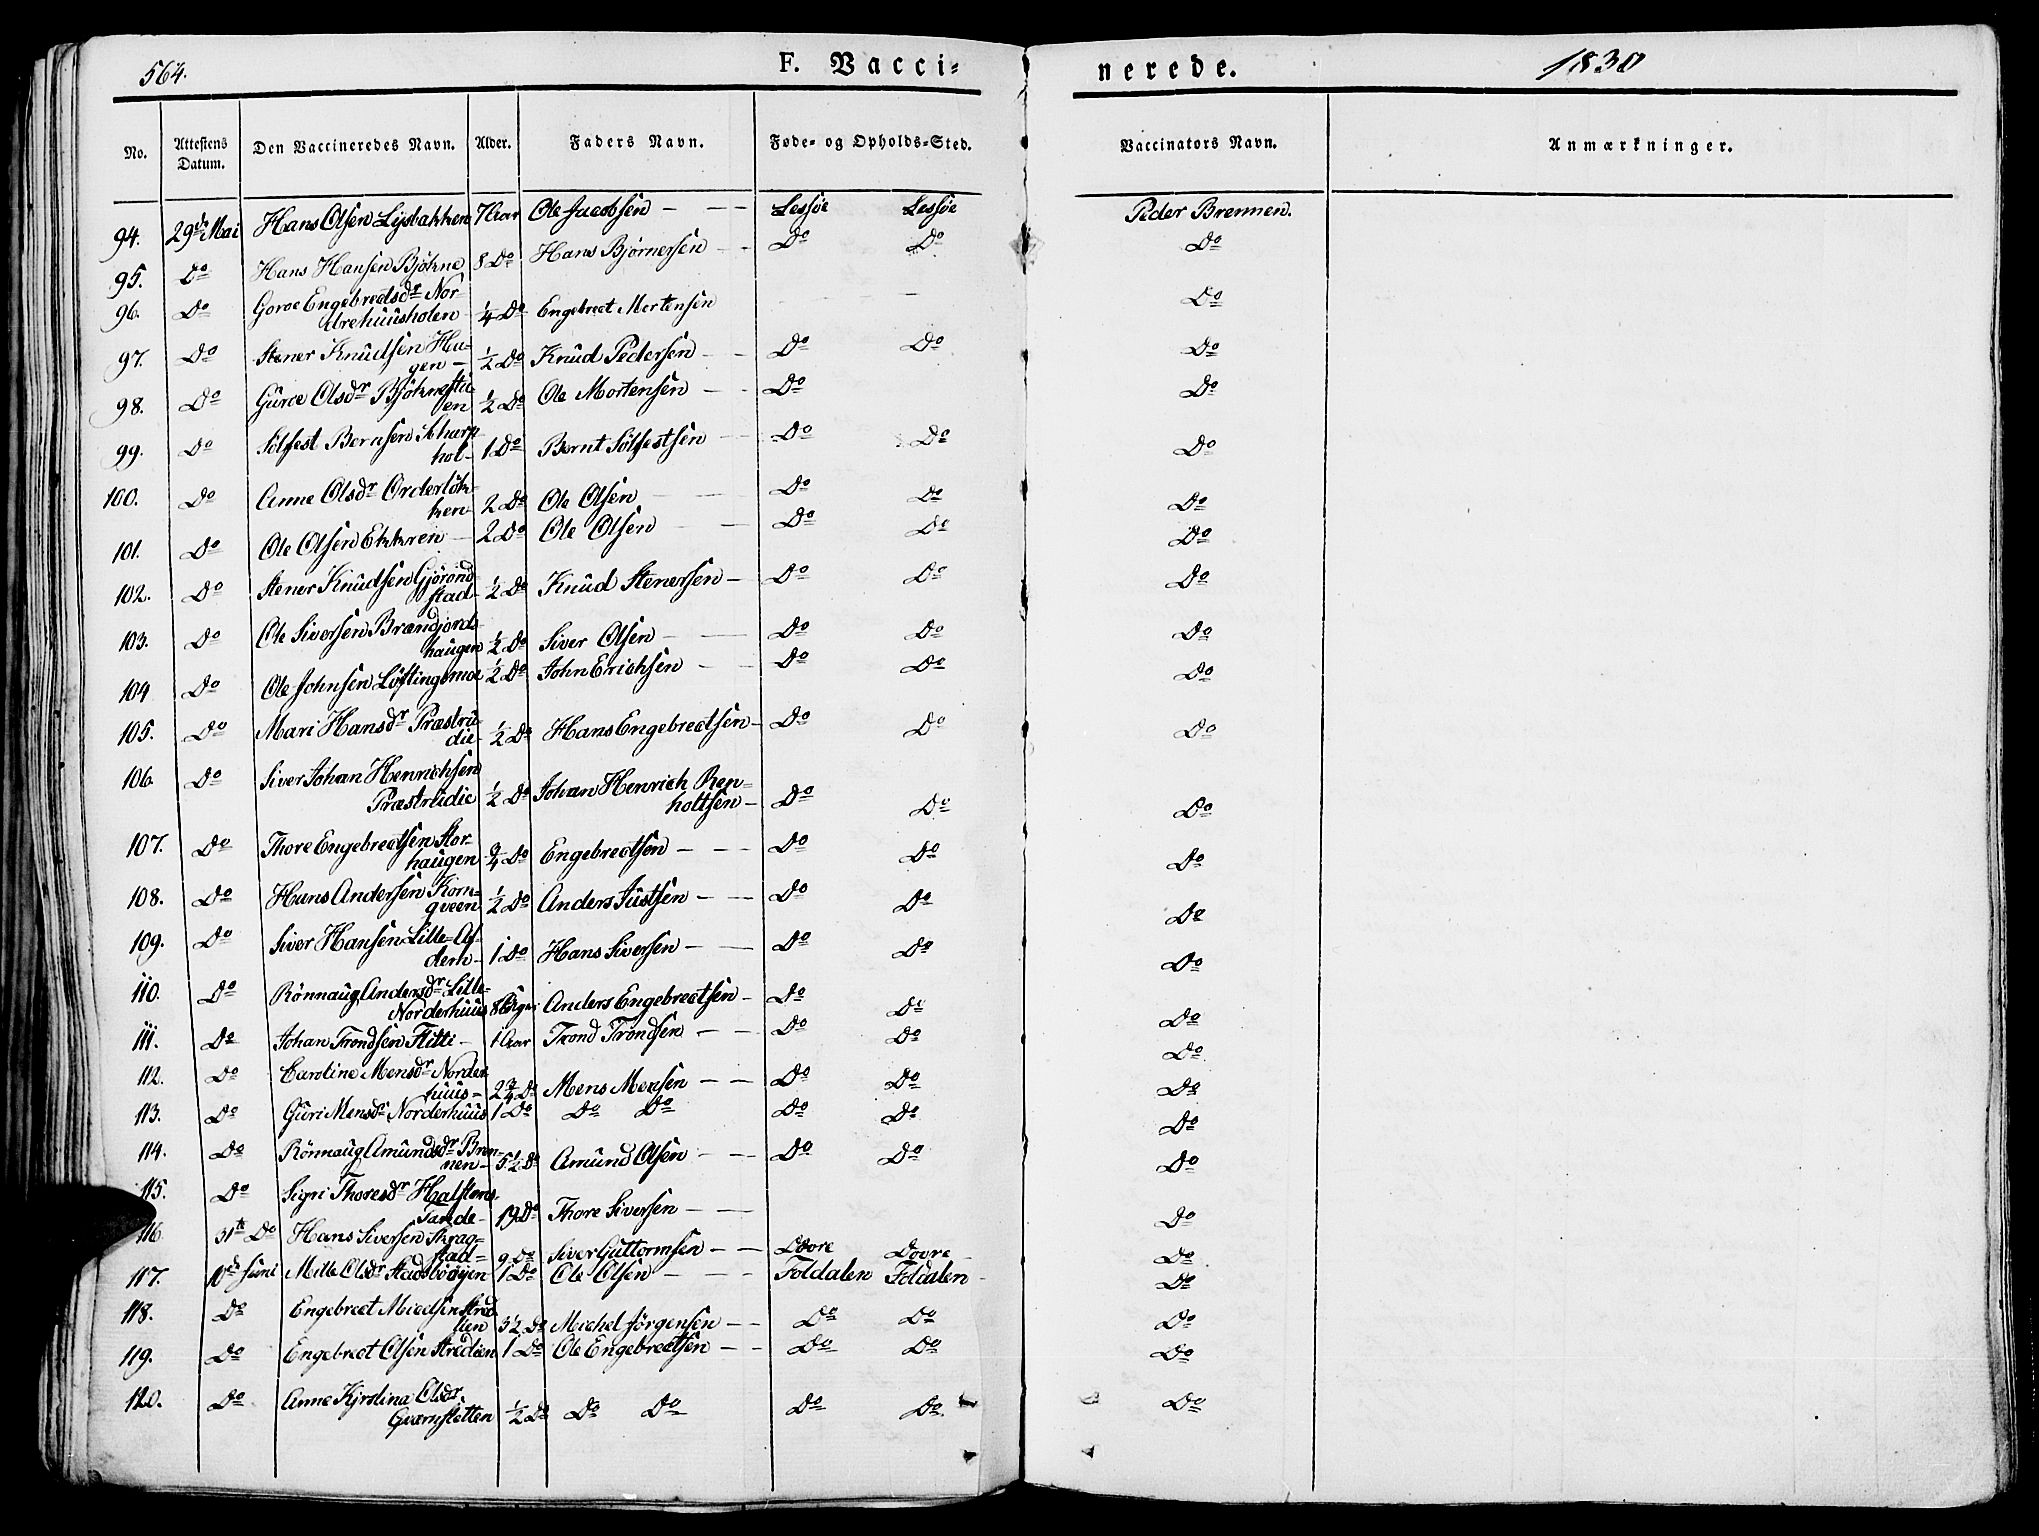 564.
F. Vacci-
nerede.
1830
No. Attestens Datum. Den Vaccineredes Navn. Alder. Faders Navn. Føde- og Opholds-Sted. Vaccinators Navn. Anmærkninger.
94. 29de Mai Hans Olsen Lysbakken 7 Aar Ole Jacobsen — — — Lessøe Lessøe Peder Brennen.
95. Do Hans Hansen Bjøkne 8 Do Hans Bjørnersen - - Do Do Do
96. Do Goroe Engebredsdr Nor-
drehuusholen ¼ Do Engebrect Mortensen — Do
97. Do Stener Knudsen Hau-
gen — ½ Do Knud Pedersen — — Do Do Do
98. Do Guroe Olsdr Bjøknestu-
en ½ Do Ole Mortensen — — Do Do
99. Do Sølfest Bernsen Skarp-
hol- 1 Do Bernt Sølfestsen — — Do Do Do
100. Do Anne Olsdr Orderløk-
ken- 2 Do Ole Olsen — — Do Do Do
101. Do Ole Olsen Ekkren — 2 Do Ole Olsen — — Do Do Do
102. Do Stener Knudsen Gjørond-
stad- ½ Do Knud Stenersen — Do Do Do
103. Do Ole Siversen Brændjord-
haugen ½ Do Siver Olsen — — Do Do Do
104 Do Ole Johnsen Løftingsmoe ½ Do John Erichsen — — Do Do Do
105. Do Mari Hansdr Præstru-
die- ½ Do Hans Engebrectsen — Do Do Do
106. Do Siver Johan Henrichsen
Præstrudie ½ Do Johan Henrich Ren-
holtsen — Do Do Do
107. Do Thore Engebrectsen Stor-
haugen ¾ Do Engebrectsen — — Do Do Do
108. Do Hans Andersen Korn-
qveen ½ Do Anders Justsen — — Do Do Do
109. Do Siver Hansen Lille-
1 Do Hans Siversen — — Do Do Do
110. Do Rönnaug Andersdr Lille-
Norderhuus 8 Anders Engebrectsen — Do Do Do
111. Do Johan Trondsen Flitti — 1 Aar Trond Trondsen — — Do Do Do
112. Do Caroline Mensdr Norder-
huus- 2¾ Do Mens Mensen — — Do Do Do
113. Do Guri Mensdr Norderhuus 1 Do Do Do Do Do Do
114. Do Rönnaug Amundsdr Bren-
nen- 5½ Do Amund Olsen — — Do Do Do
115. Do Sigri Thoresdr Halstens-
Tande- 19 Do Thore Siversen — — Do
116 31te Do Hans Siversen Skrag-
stad- 9 Do Siver Guttormsen — — Dovre Dovre Do
117. 10de Juni Mille Olsdr Stadsbøøyen 1 Do Ole Olsen — — Foldalen Foldalen Do
118. Do Engebrect Micelsen Stræd-
lien 3½ Do Michel Jörgensen — — Do Do Do
119. Do Engebrect Olsen Strædlien 1 Do Ole Engebrectsen — — Do Do Do
120. Do Anne Kjrstina Olsdr.
Qværnstetten ½ Do Do Do Do Do Do